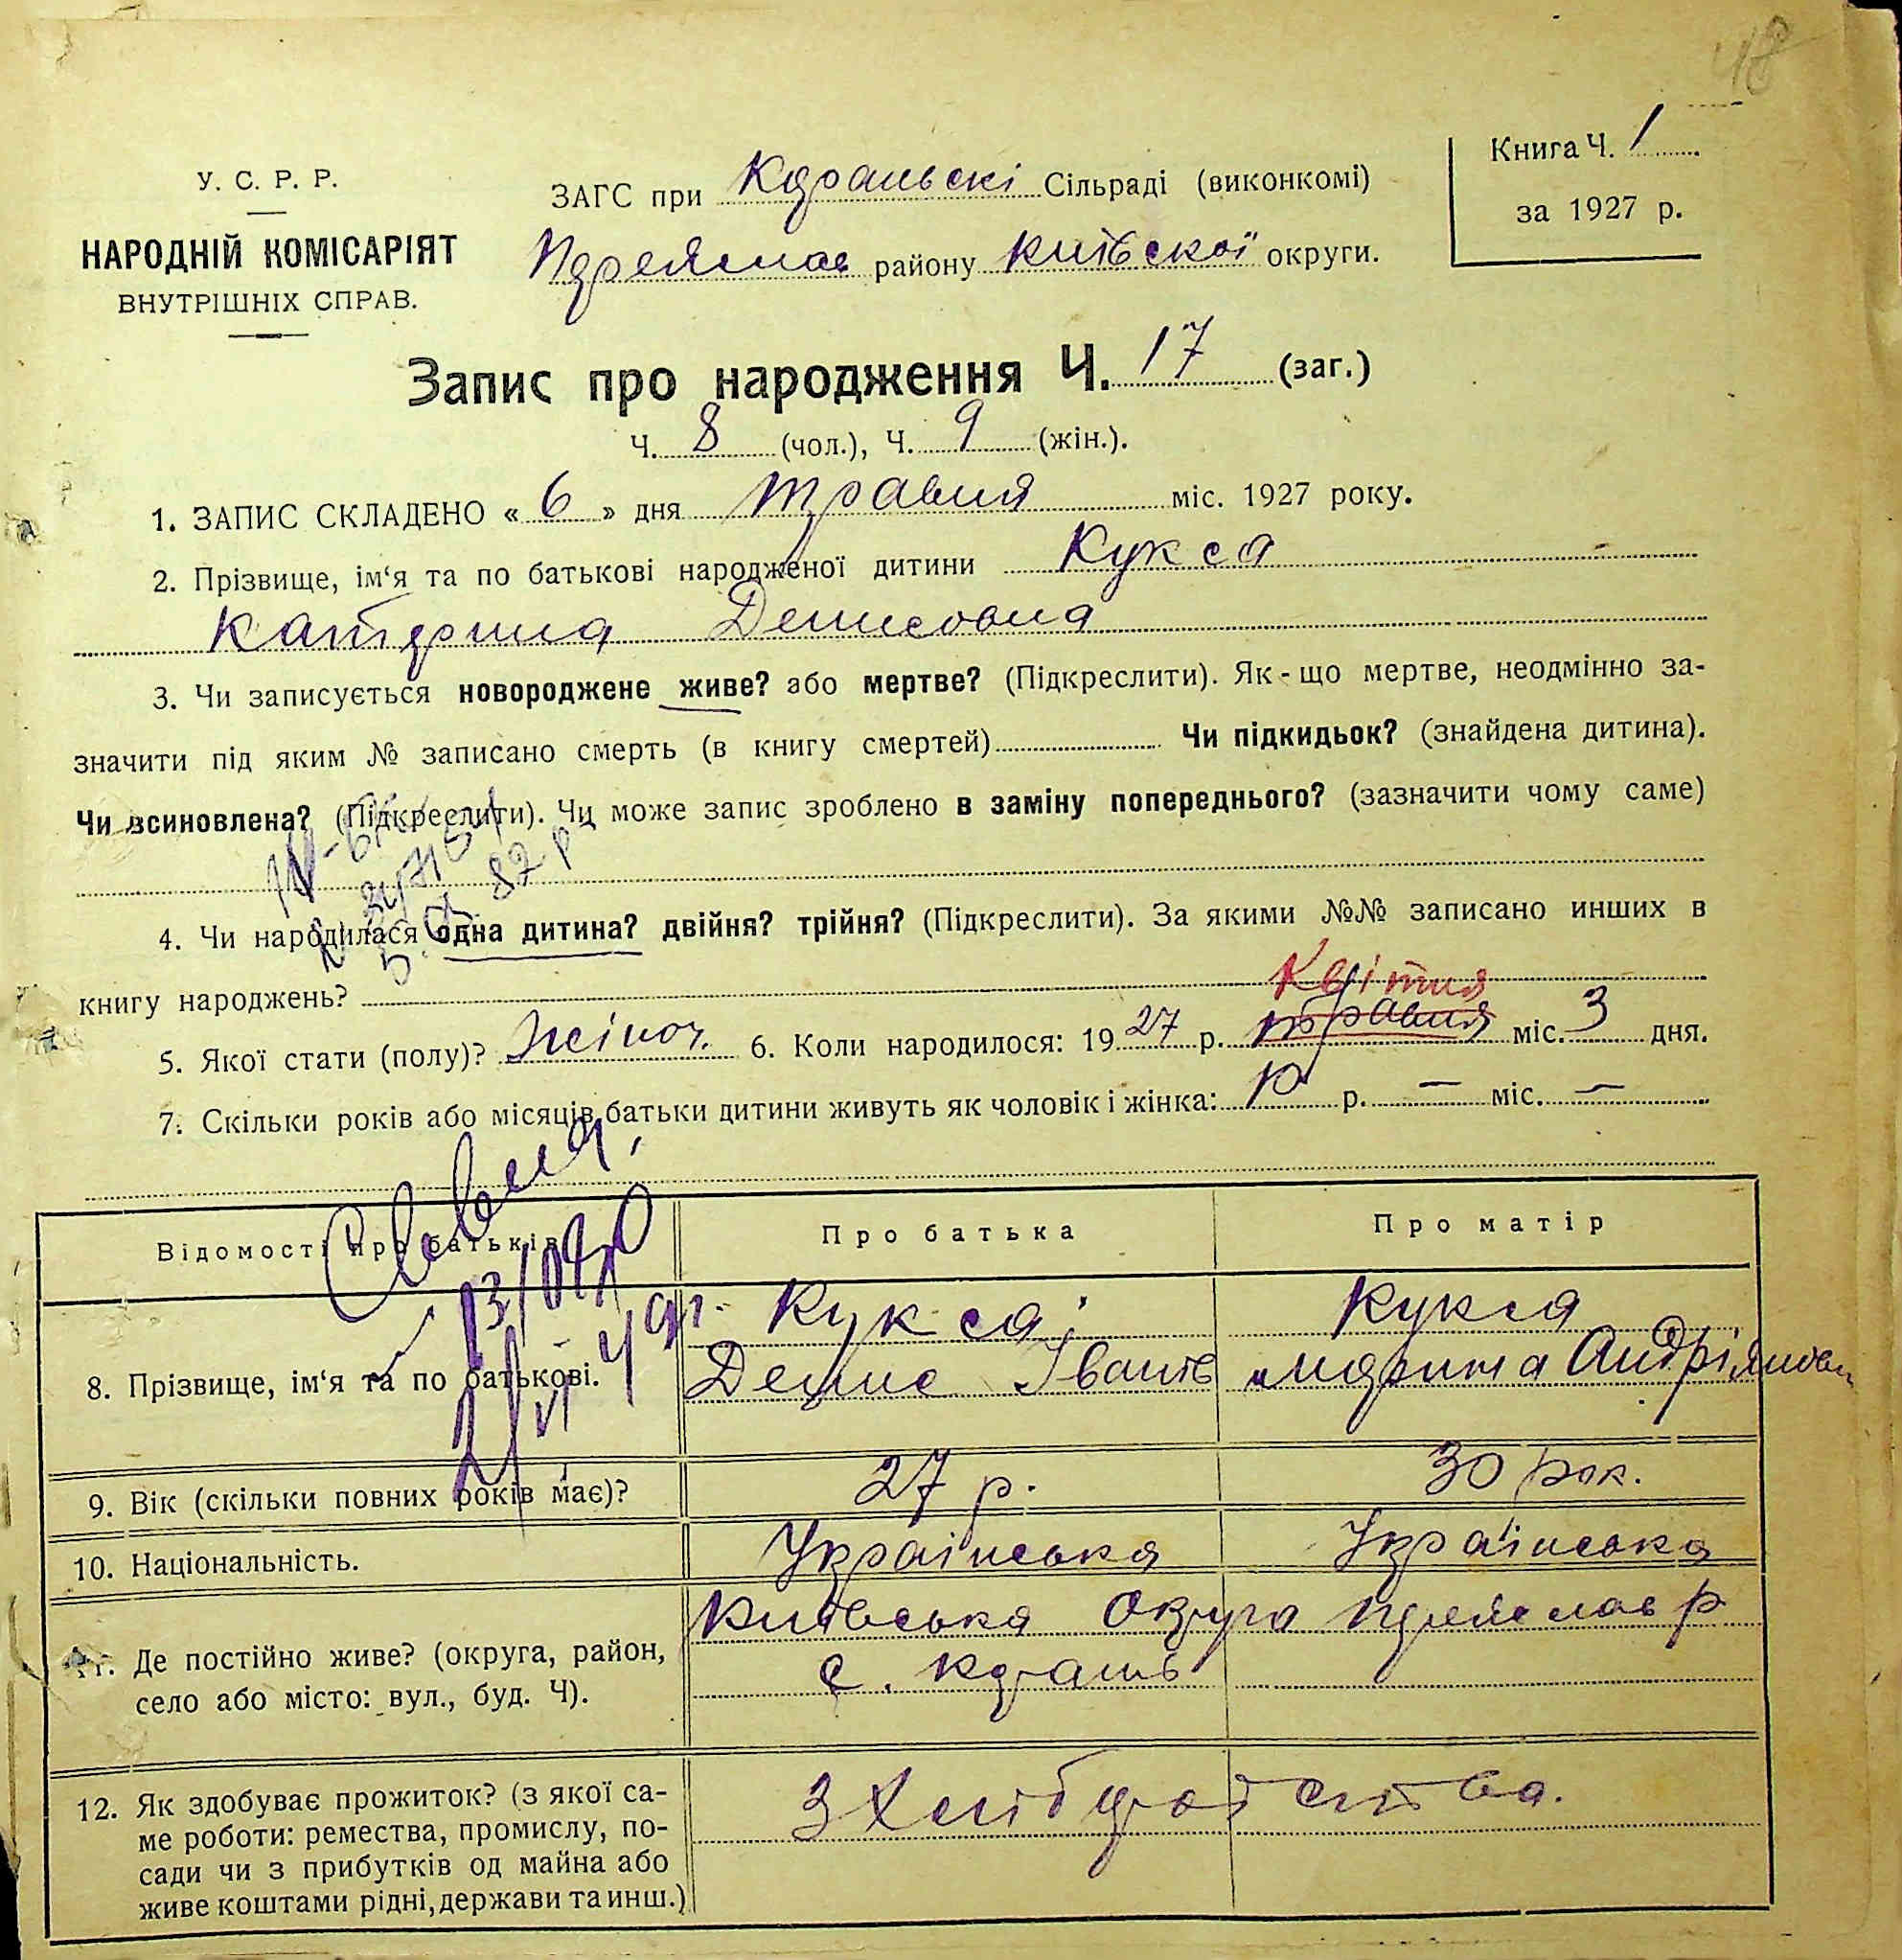 48
У. С. Р. Р.
НАРОДНІЙ КОМІСАРІЯТ
ВНУТРІШНІХ СПРАВ.
ЗАГС при Каранські Сільраді (виконкомі)
Переяслав району київскої округи.
Книга Ч. 1
за 1927 р.
Запис про народження Ч. 17 (заг.)
Ч. 8 (чол.), Ч. 9 (жін.).
1. ЗАПИС СКЛАДЕНО « 6 » дня травня міс. 1927 року.
2. Прізвище, ім‘я та по батькові народженої дитини Кукса
Катерина Денисовна
3. Чи записується новороджене живе? або мертве? (Підкреслити). Як - що мертве, неодмінно за-
значити під яким № записано смерть (в книгу смертей) Чи підкидьок? (знайдена дитина).
Чи всиновлена? (Підкреслити). Чи може запис зроблено в заміну попереднього? (зазначити чому саме)
4. Чи народилася одна дитина? двійня? трійня? (Підкреслити). За якими №№ записано инших в
книгу народжень?
Квітня
5. Якої стати (полу)? Жіноч. 6. Коли народилося: 1927 р. травня міс. 3 дня.
7. Скільки років або місяців батьки дитини живуть як чоловік і жінка: 10 р. — міс. —
Відомості про батьків Про батька Про матір
Кукса Кукса
8. Прізвище, ім‘я та по батькові. Денис Іванів Марина Андріянов
9. Вік (скільки повних років має)? 27 р. 30 рок.
10. Національність. Українська Українська
Київська округа Переяслав р
11. Де постійно живе? (округа, район,
село або місто: вул., буд. Ч). с. Карань
12. Як здобуває прожиток? (з якої са-
ме роботи: ремества, промислу, по-
сади чи з прибутків од майна або
живе коштами рідні, держави та инш.)
З Хліборобства.